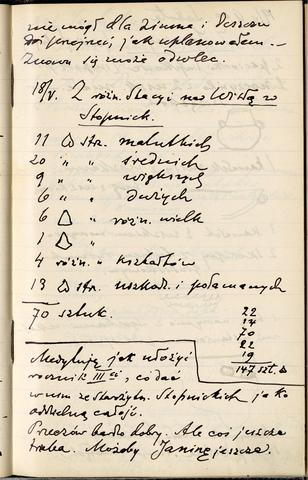 nie mógł dla zimna i deszczu
być prędzej, jak uplanowałem. —
Znowu się może odwlec.
18/V. Z różn. stacyi nad Wisłą w
Stopnick.
11 △ str. malutkich
20 „ „ średnich
9 „ „ większych
6 „ „ dużych
6 △ „ różn. wielk
1 △ „
4 różn. „ kształtów
13 △ str. uszkodz. i połamanych
70 sztuk.
22
14
70
22
19
147 szt. △
Medytuję jak ułożyć
rocznik III ci, co dać
w nim ze starżytn. Stopnickich, jako
oddzielną całość.
Przerów bardzo dobry. Ale coś jeszcze
trzeba. Możeby Janinę jeszcze.